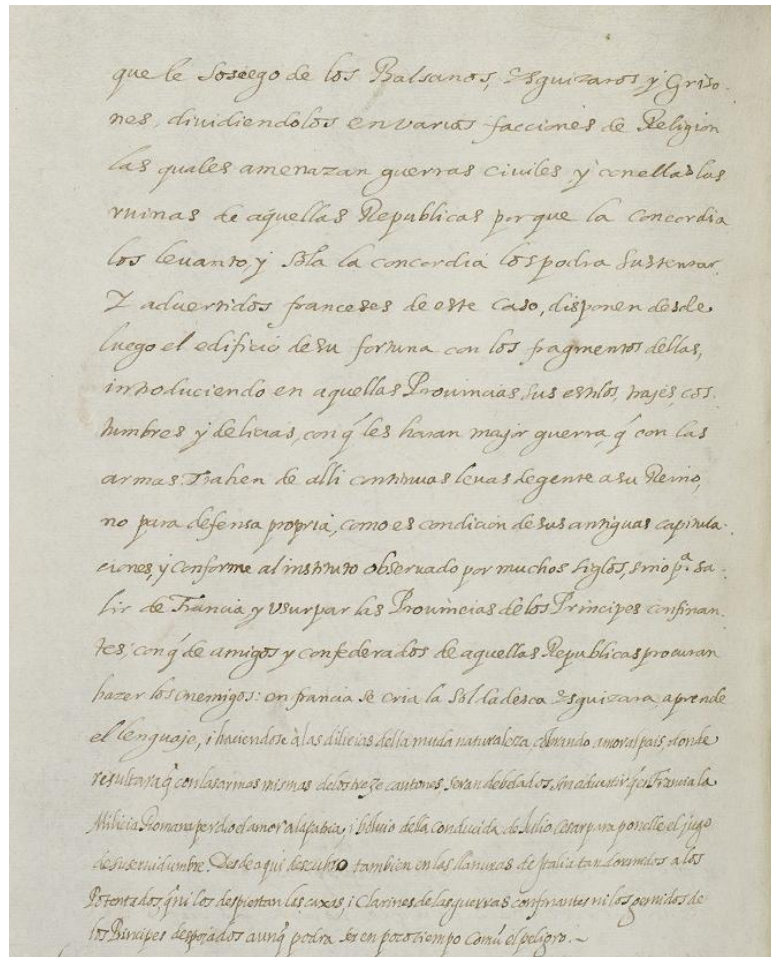 que le Sosiego de los Balsanos, Esguizaros y Griso-
nes, diuidiendolos en varias facciones de Religion
las quales amenazan guerras ciuiles y con ellas las
ruinas de aquellas Republicas porque la concordia
los leuanto, y Sola la concordia los podra Sustentar.
Y aduertidos franceses de este caso, disponen desde
luego el edificio de su fortuna con los fragmentos dellas,
introduciendo en aquellas Prouincias sus estilos, trajes, cos-
tumbres y delicias, con q̃ les haran major guerra, q̃ con las
armas. Trahen de alli continuas leuas de gente a su Reino,
no para defensa propria, como es condicion de sus antiguas capitula-
ciones, y conforme al instituto obseruado por muchos siglos, sino pª. sa-
lir de Francia y vsurpar las Prouincias de los Principes confinan-
tes; con q̃ de amigos y confederados de aquellas Republicas procuran
hazer los enemigos: en francia se cria la Soldadesca Esguizara, aprende
el lenguaje, i haciendose à las dilicias della muda naturaleza, cobrando amor al pais, donde
resultara q̃ con las armas mismas de los treze cantones, seran debelados, sin aduertir q̃ en Francia la
Milicia Romana perdio el amor a la patria, i boluio della conducida de Julio Cesar para ponelle el jugo
de su seruidumbre. Desde aqui descubro tambien en las llanuras de Italia tan dormidos a los
Potentados q̃ ni los despiertan las caxas, i Clarines de las guerras confinantes ni los gemidos de
los Principes despojados aunq̃ podra ser en poco tiempo comũ el peligro. ~